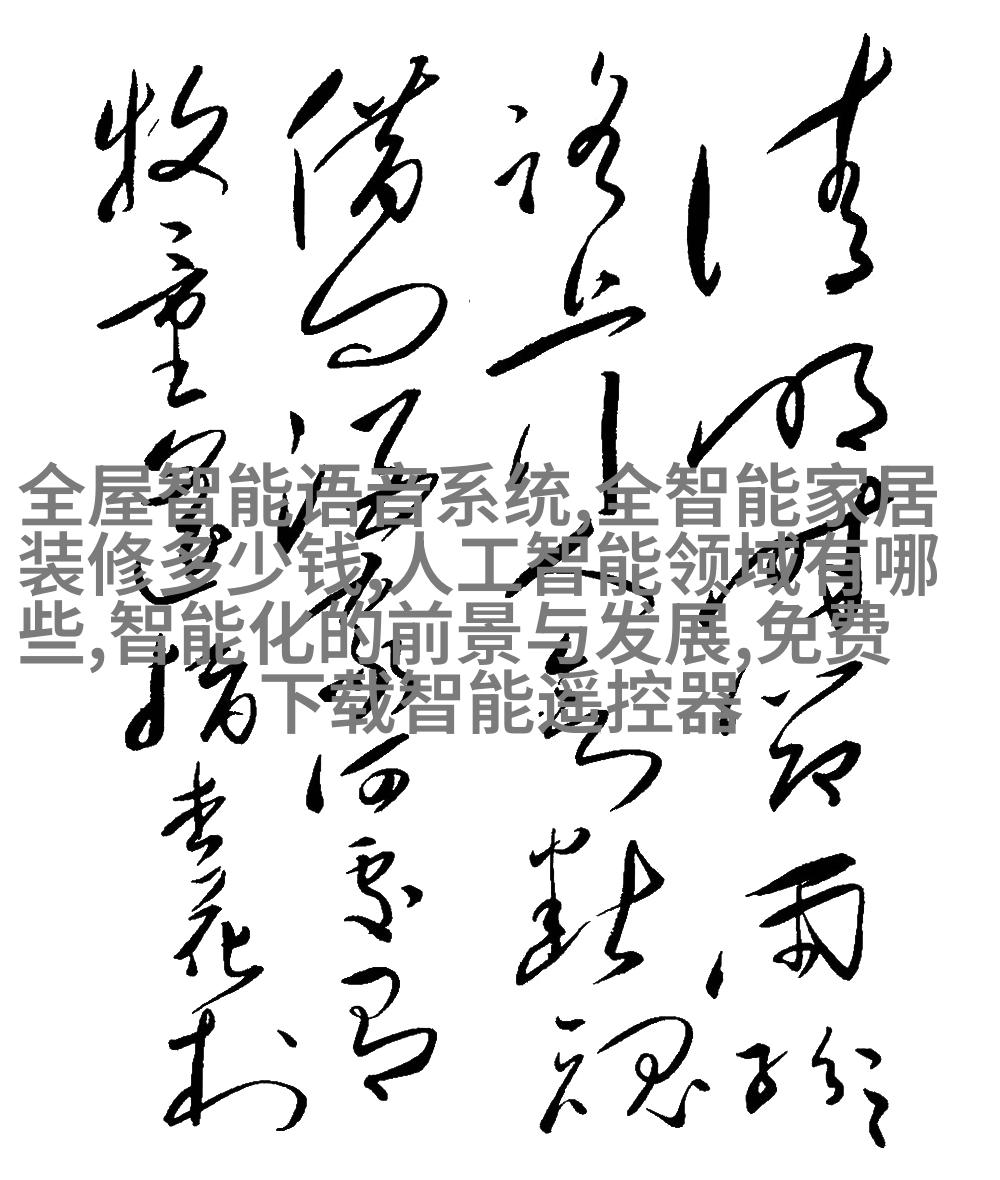 清明时节雨纷纷
路上行人欲断魂
借问酒家何处有
牧童遥指杏花村
全屋智能语音系统,全智能家居
装修多少钱,人工智能领域有哪
些,智能化的前景与发展,免费
下载智能遥控器